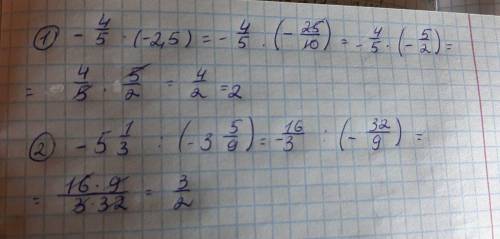 ① - 4/5 · (-2,5) = - 4/5 · (- 25/10) = - 4/5 · (- 5/2) =
= 4/5 · 5/2 = 4/2 = 2
② - 5 1/3 : (- 3 5/9) = - 16/3 : (- 32/9) =
= 16·9/3·32 = 3/2